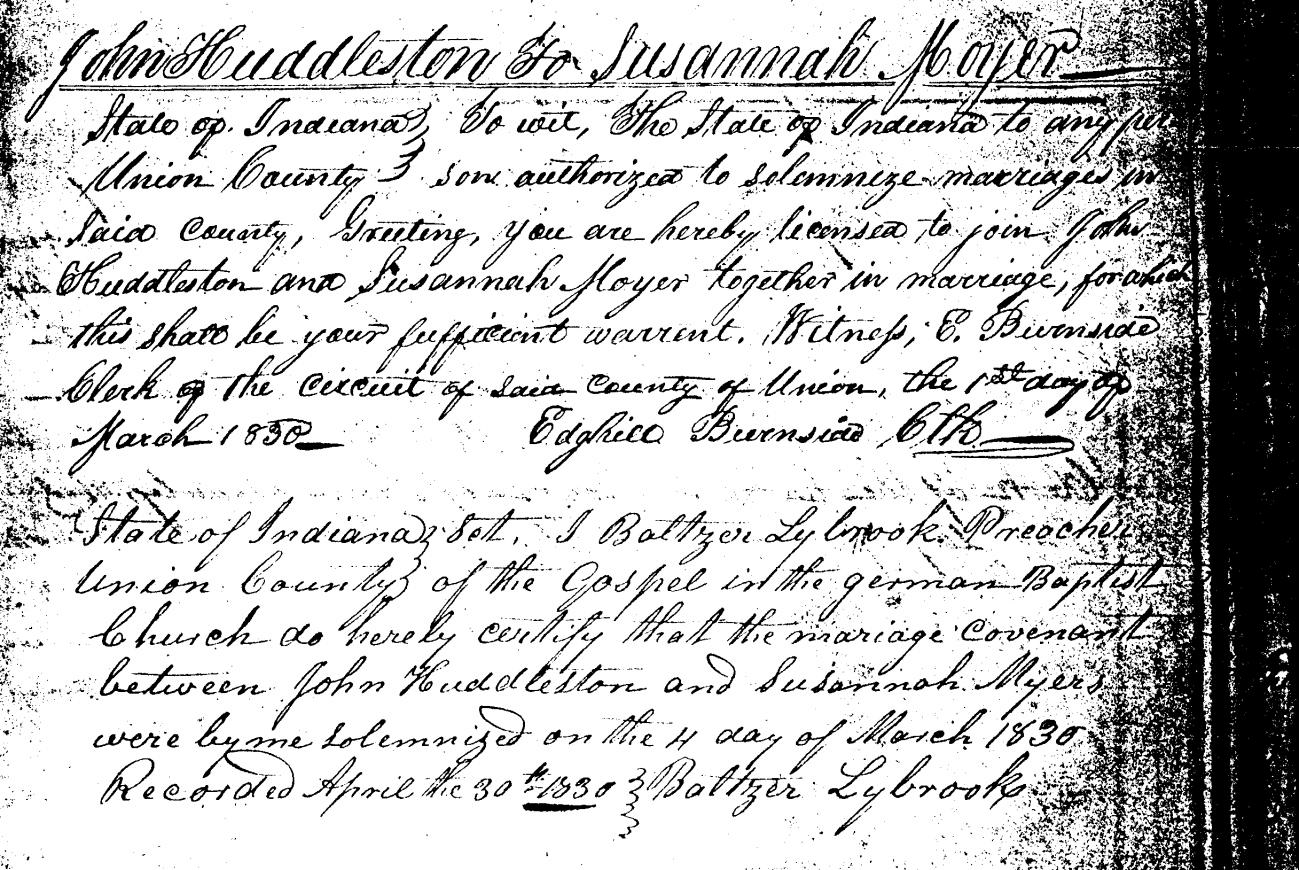 John Huddleston To Susannah Moyer
State of Indiana } To wit, The State of Indiana to any per
Union County } son authorized to solemnize marriages in
Said County, Greeting, you are hereby licensed to join John
Huddleston and Susannah Moyer together in marriage, for which
this shall be your sufficient warrent. Witness, E. Burnside
Clerk of the circuit of said county of Union, the 1st day of
March 1830 Edghill Burnside Clk
State of Indiana } Sct. I Baltzer Lybrook Preacher
Union County } of the Gospel in the german Baptist
Church do hereby certify that the mariage covenant
between John Huddleston and Susannah Myers
were by me solemnized on the 4 day of March 1830
Recorded April the 30th 1830 } Baltzer Lybrook